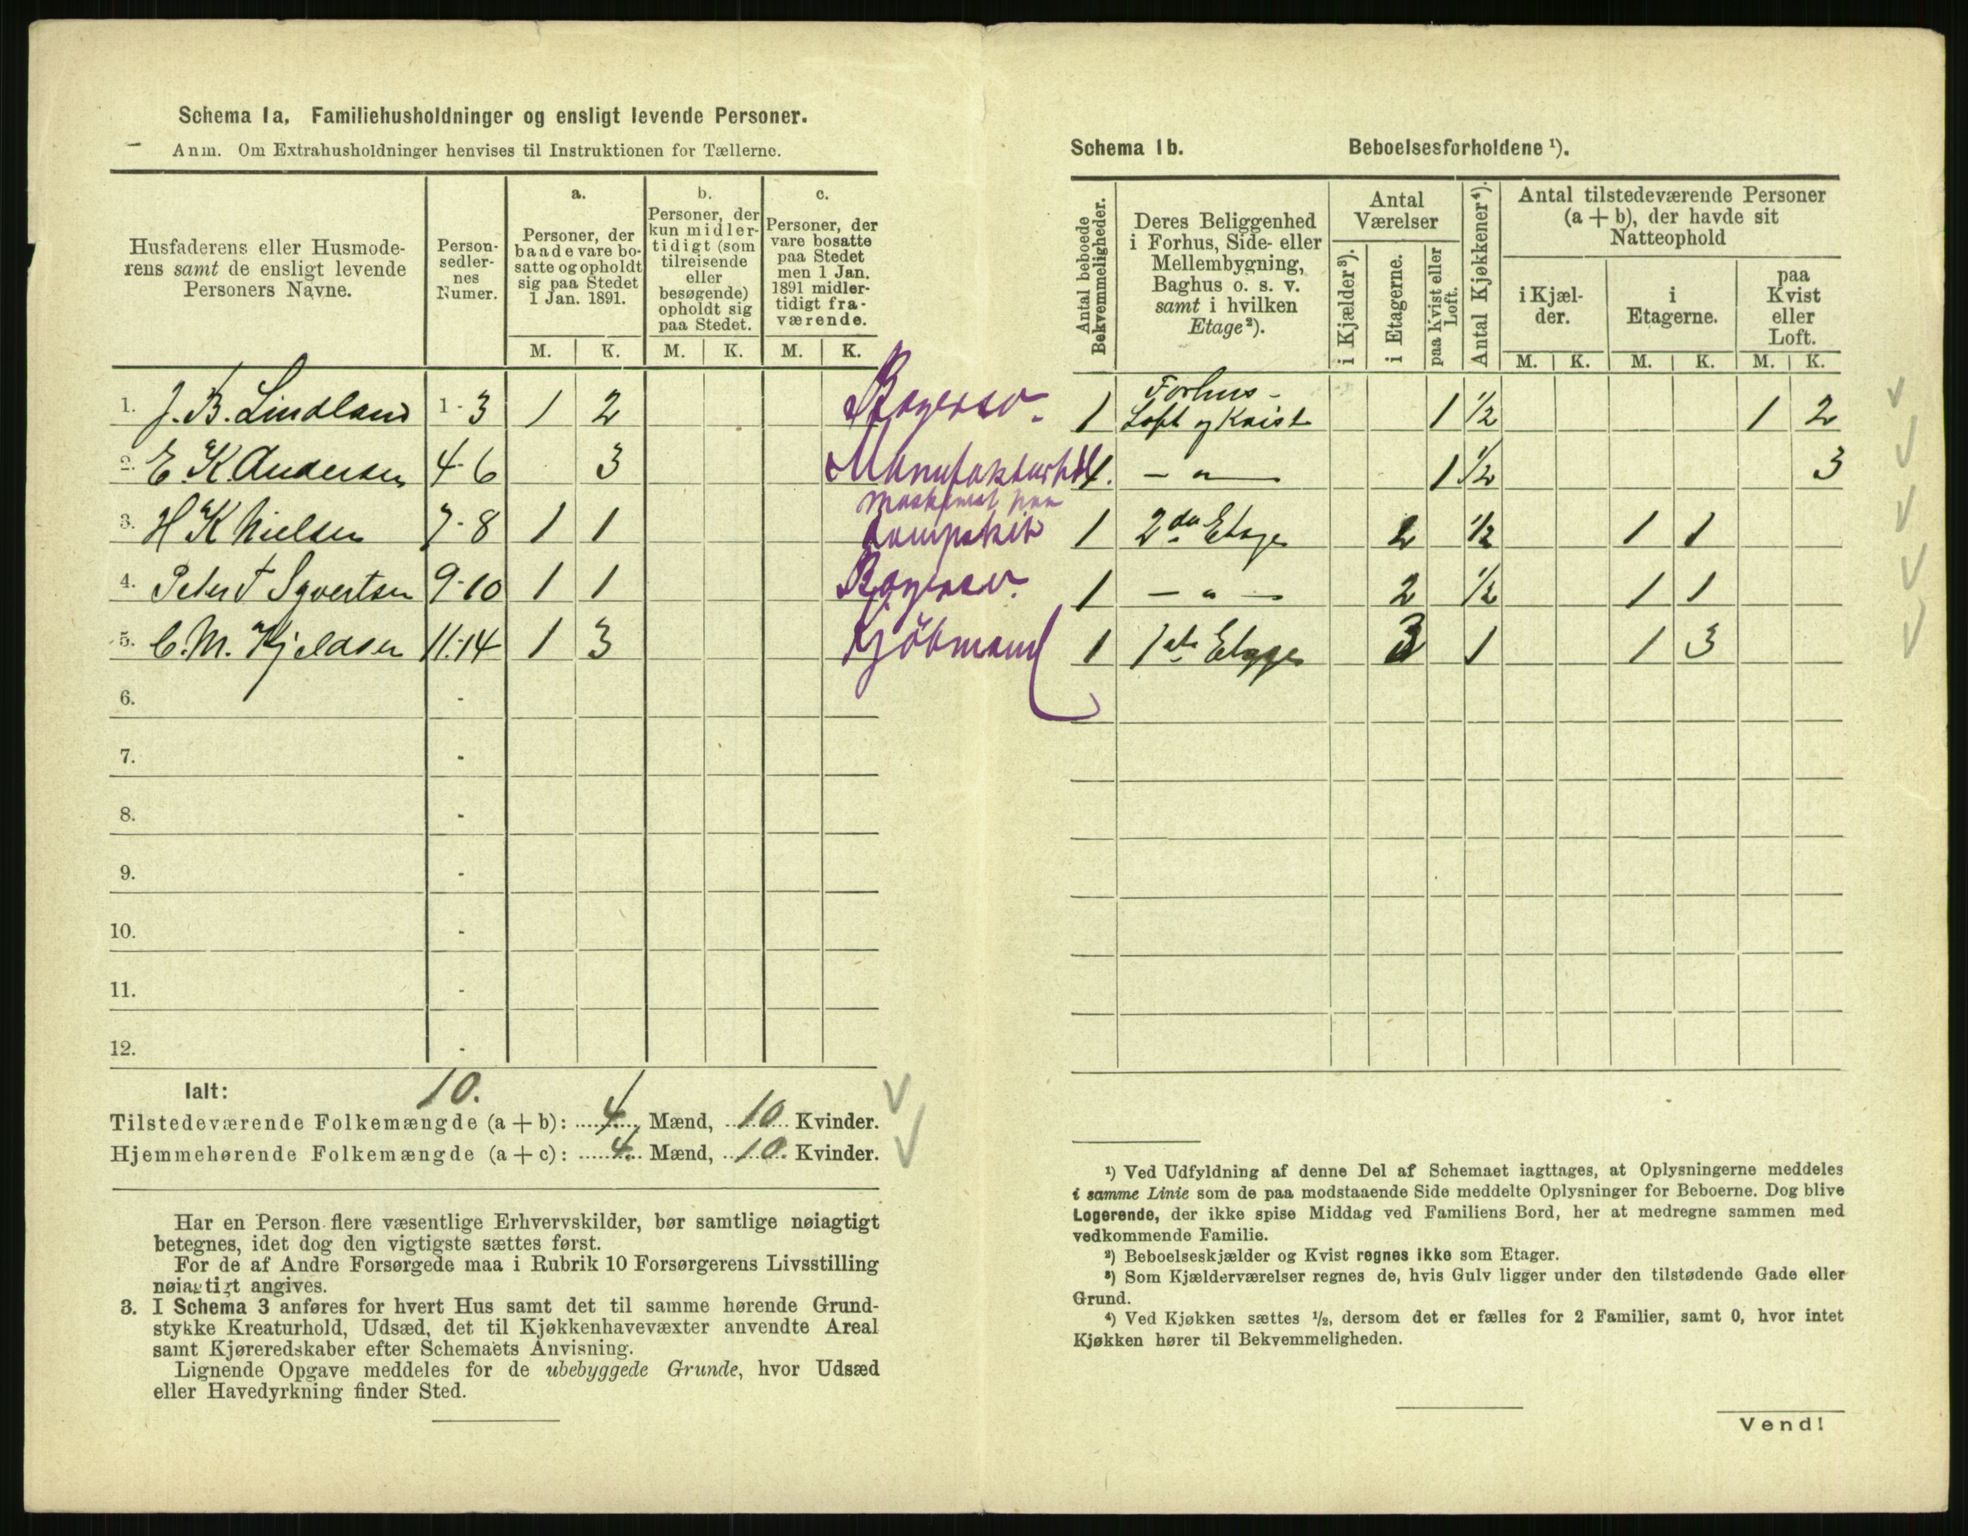 Schema 1a. Familiehusholdninger og ensligt levende Personer.
Anm. Om Extrahusholdninger henvises til Instruktionen for Tællerne.
Husfaderens eller Husmoderens samt de ensligt levende Personers Navne.
Personsedlernes Numer.
a. Personer, der baade vare bosatte og opholdt sig paa Stedet 1 Jan. 1891.
b. Personer, der kun midlertidigt (som tilreisende eller besøgende) opholdt sig paa Stedet.
c. Personer, der vare bosatte paa Stedet men 1 Jan. 1891 midlertidigt fraværende.
M. K. M. K. M. K.
1. J. B. Lindland 1-3 1 2
2. E K Andersen 4-6 3 Manufakturhdl
3. H K Nielsen 7-8 1 1
4. Peter T Syvertsen 9-10 1 1
5. C. M. Kjeldsen 11-14 1 3 Kjöbmand
6. -
7. -
8. -
9. -
10. -
11. -
12. -
Ialt: 10.
Tilstedeværende Folkemængde (a + b): 4. Mænd, 10 Kvinder.
Hjemmehørende Folkemængde (a + c): 4. Mænd, 10. Kvinder.
Har en Person flere væsentlige Erhvervskilder, bør samtlige nøiagtigt
betegnes, idet dog den vigtigste sættes først.
For de af Andre Forsørgede maa i Rubrik 10 Forsørgerens Livsstilling
nøiagtigt angives.
3. I Schema 3 anføres for hvert Hus samt det til samme hørende Grund-
stykke Kreaturhold, Udsæd, det til Kjøkkenhavevæxter anvendte Areal
samt Kjøreredskaber efter Schemaets Anvisning.
Lignende Opgave meddeles for de ubebyggede Grunde, hvor Udsæd
eller Havedyrkning finder Sted.
Schema 1b. Beboelsesforholdene ¹).
Antal beboede Bekvemmeligheder.
Deres Beliggenhed i Forhus, Side- eller Mellembygning, Baghus o. s. v. samt i hvilken Etage²).
Antal Værelser
i Kjælder³).
i Etagerne.
paa Kvist eller Loft.
Antal Kjøkkener⁴).
Antal tilstedeværende Personer (a + b), der havde sit Natteophold
i Kjælder.
i Etagerne.
paa Kvist eller Loft.
M. K. M. K. M. K.
1 Forhus - Loft og Kvist 1 1/2 1 2
1. — " — 1 1/2 3
1 2den Etage 2 1/2 1 1
1 — " — 2 1/2 1 1
1 1ste Etage 3 1 1 3
¹) Ved Udfyldning af denne Del af Schemaet iagttages, at Oplysningerne meddeles
i samme Linie som de paa modstaaende Side meddelte Oplysninger for Beboerne. Dog blive
Logerende, der ikke spise Middag ved Familiens Bord, her at medregne sammen med
vedkommende Familie.
²) Beboelseskjælder og Kvist regnes ikke som Etager.
³) Som Kjælderværelser regnes de, hvis Gulv ligger under den tilstødende Gade eller
Grund.
⁴) Ved Kjøkken sættes ½, dersom det er fælles for 2 Familier, samt 0, hvor intet
Kjøkken hører til Bekvemmeligheden.
Vend!